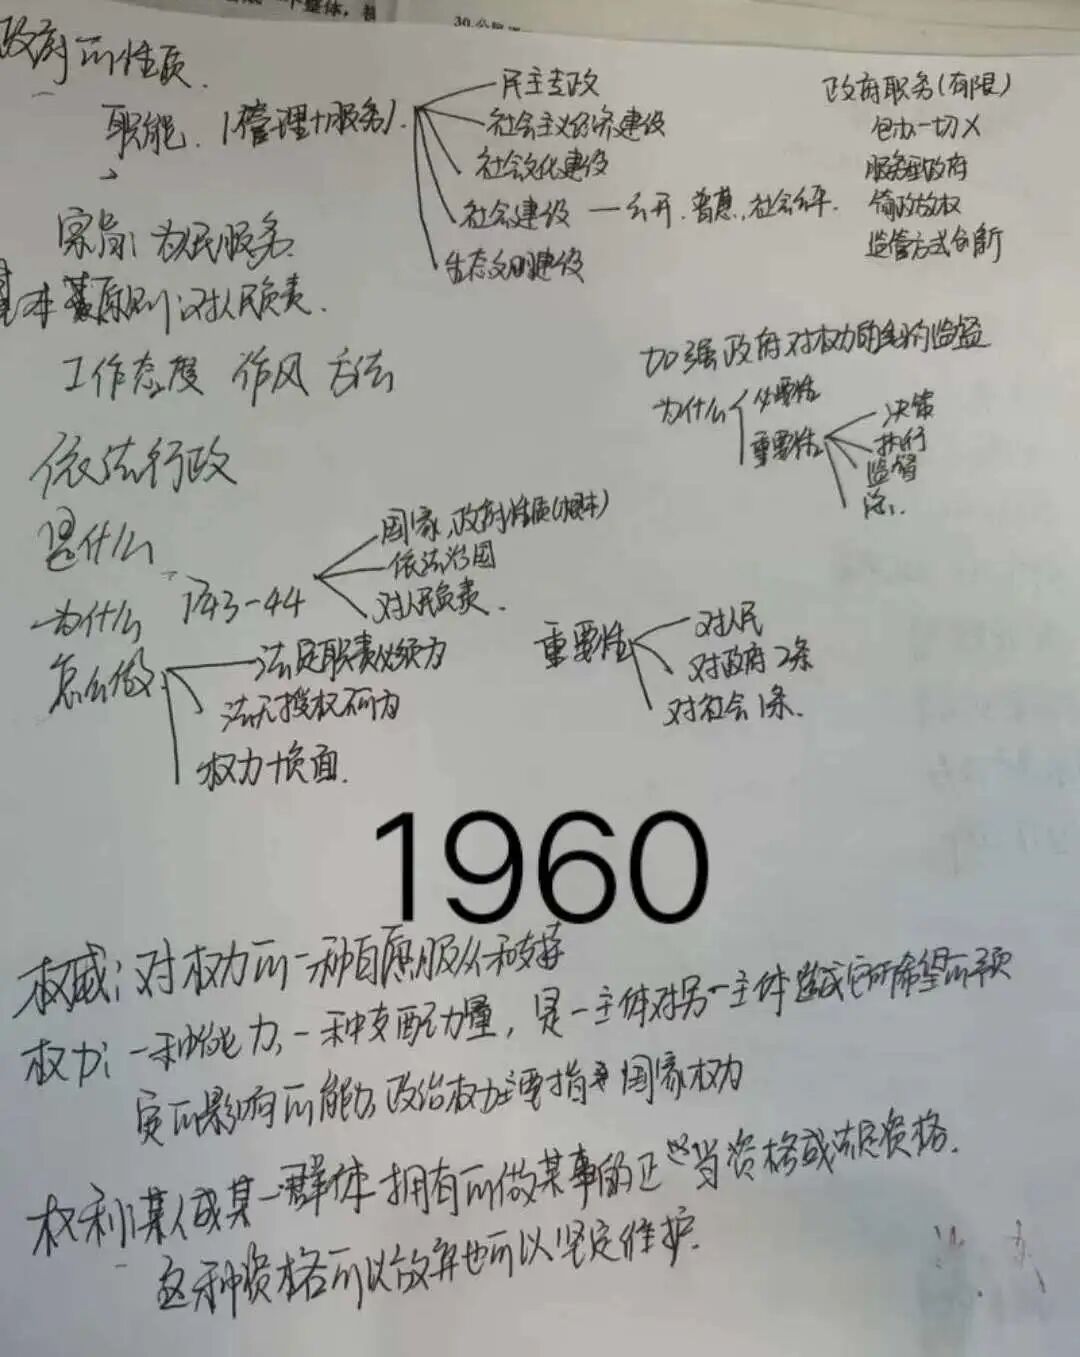 个整体，
30.公
政府的性质.
职能.(管理+服务).
民主专政
社会主义经济建设
社会文化建设
社会建设 — 公开.普惠.社会公平.
生态文明建设
政府职务(有限)
包办一切×
服务型政府
简政放权
监管方式创新
宗旨：为民服务.
基本原则：对人民负责.
工作态度 作风 方法
加强政府对权力的制约监督
为什么
必要性
重要性
决策
执行
监督
依法行政
是什么
为什么 P43-44
国家,政府性质(根本)
依法治国
对人民负责.
怎么做
法定职责必须为
法无授权不可为
权力+负面.
重要性
对人民
对政府 2条
对社会 1条.
1960
权威：对权力的一种自愿服从和支持
权力：一种能力,一种支配力量，是一主体对另一主体造成它所希望的预
定的影响的能力,政治权力主要指国家权力
权利：某人或某一群体拥有的做某事的正当资格或法定资格.
这种资格可以放弃也可以坚定维护.